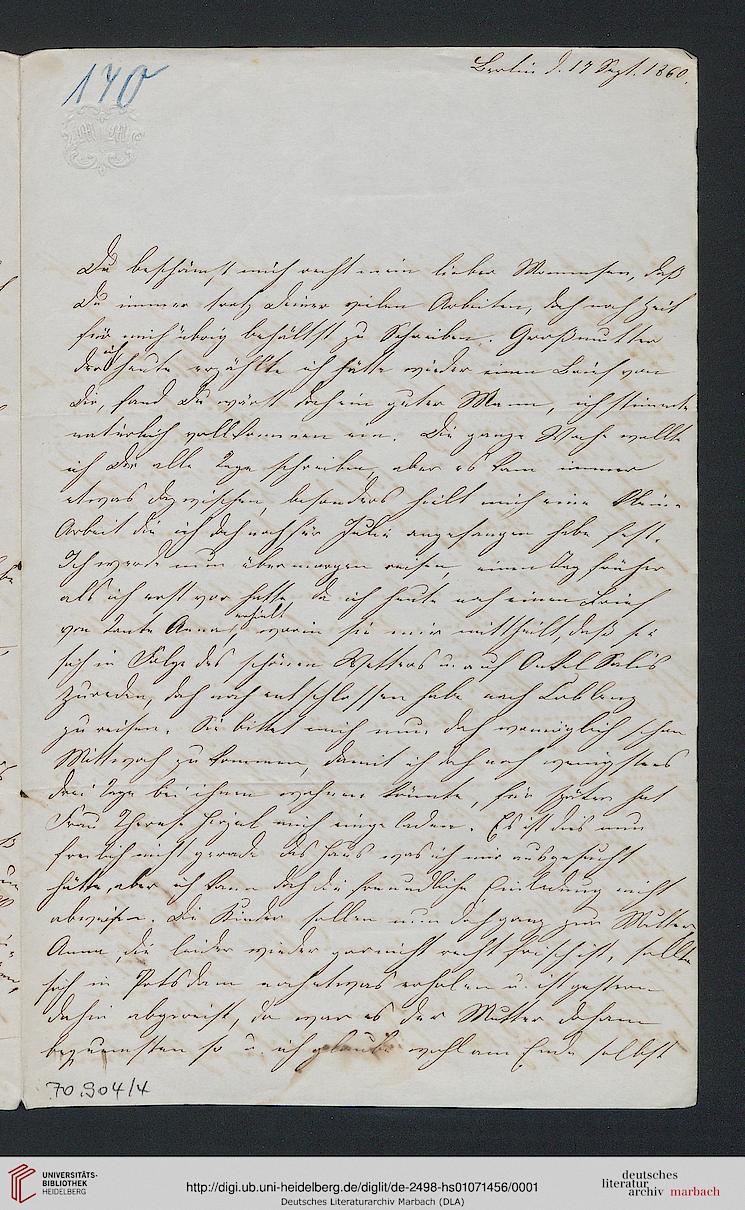 140
Berlin d. 17 Sept. 1860.
Du beschämst mich recht mein lieber Mommsen, daß
Du immer trotz Deiner vielen Arbeiten, doch noch Zeit
für mich übrig behältst zu Schreiben. Großmutter
der ich heute erzählte ich hätte wieder einen Brief von
Dir, fand Du wärst doch ein guter Mann, ich stimmte
natürlich vollkommen ein. Die ganze Woche wollte
ich Dir alle Tage schreiben, aber es kam immer
etwas dazwischen, besonders hielt mich eine kleine
Arbeit die ich doch noch für Julie angefangen habe fest.
Ich werde nun übermorgen reisen einen Tag früher
als ich erst vor hatte da ich heute noch einen Brief
von Tante Anna erhielt worin sie mir mittheilt, daß sie
sich in Folge des schönen Wetters u. auf Onkel
Zureden, doch noch entschlossen habe nach Coblenz
zu reisen. Sie bittet mich nun doch womöglich schon
Mittwoch zu kommen, damit ich doch noch wenigstens
drei Tage bei ihnen wohnen könnte, für später hat
Frau Therese mich eingeladen. Es ist dies nun
freilich nicht gerade das Haus was ich mir ausgesucht
hätte, aber ich kann doch die freundliche Einladung nicht
abweisen. Die Kinder sollen nun doch ganz zur Mutter
Anna, die leider wieder gar nicht recht frisch ist, sollte
sich in Potsdam noch etwas erholen u. ist gestern
dahin abgereist, da war es der Mutter
bequemsten so u. ich glaube wohl am Ende selbst
70.904/4
UNIVERSITÄTS-
BIBLIOTHEK
HEIDELBERG
http://digi.ub.uni-heidelberg.de/diglit/de-2498-hs01071456/0001
Deutsches Literaturarchiv Marbach (DLA)
deutsches
literatur
archiv marbach